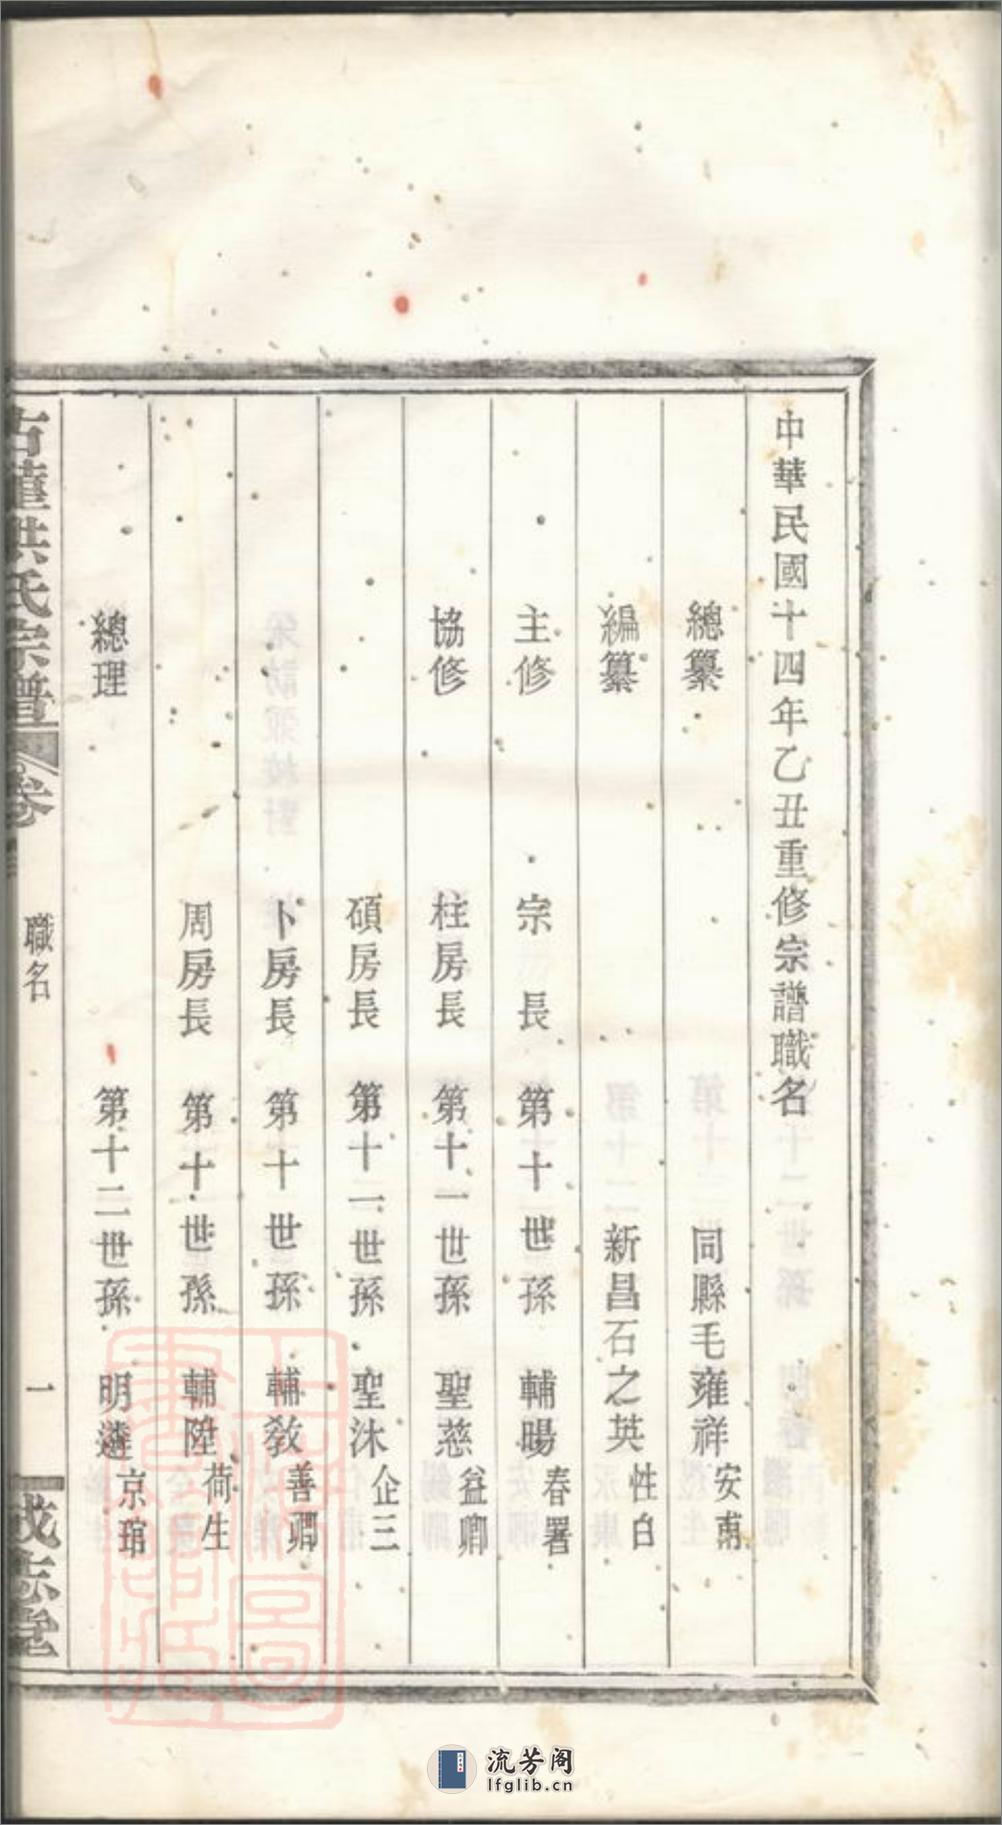 中華民國十四年乙丑重修宗譜職名
總纂 同縣毛雍祥 安甫
編纂 新昌石之英 性白
主修 宗長 第十世孫 輔暘 春署
協修 柱房長 第十一世孫 聖慈 益卿
碩房長 第十一世孫 聖沐 企三
卜房長 第十世孫 輔教 善卿
周房長 第十世孫 輔陞 荷生
總理 第十二世孫 明遴 京琯
洪氏宗譜 卷 職名 一 成志堂
流芳阁
lfglib.cn